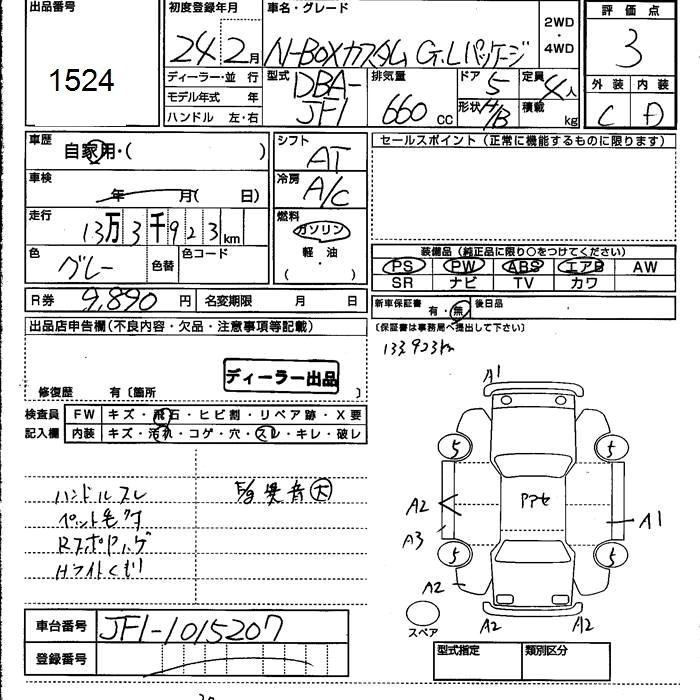 出品番号
1524
初度登録年月
24 2月
車名・グレード
N-BOXカスタム G.Lパッケージ
2WD
・
4WD
評価点
3
外装 内装
C D
ディーラー・並 行
モデル年式 年
ハンドル 左・右
型式
DBA-
JF1
排気量
660 cc
ドア 5
形状 H/B
定員 4人
積載 kg
車歴
自家用・( )
車検
年 月( 日)
走行
13万3千923km
色
グレー
色替
色コード
シフト
AT
冷房
A/C
燃料
ガソリン
軽・油
( ・ )
セールスポイント(正常に機能するものに限ります)
装備品(純正品に限り○をつけてください)
PS PW ABS エアB AW
SR ナビ TV カワ
R券 9,890 円
名変期限 月 日
新車保証書 有・無
後日品
(保証書は事務局へ提出して下さい)
133923km
出品店申告欄(不良内容・欠品・注意事項等記載)
ディーラー出品
修復歴 有〔箇所 〕
検査員
記入欄
FW キズ・飛石・ヒビ割・リペア跡・X要
内装 キズ・汚れ・コゲ・穴・スレ・キレ・破レ
ハンドルスレ
ペット毛付
Hライトくもり
E/g異音大
A1
5
5
アアセ
A2
A3
A1
5
5
A2
A2
A2
スペア
車台番号 JF1-1015207
登録番号
型式指定 類別区分